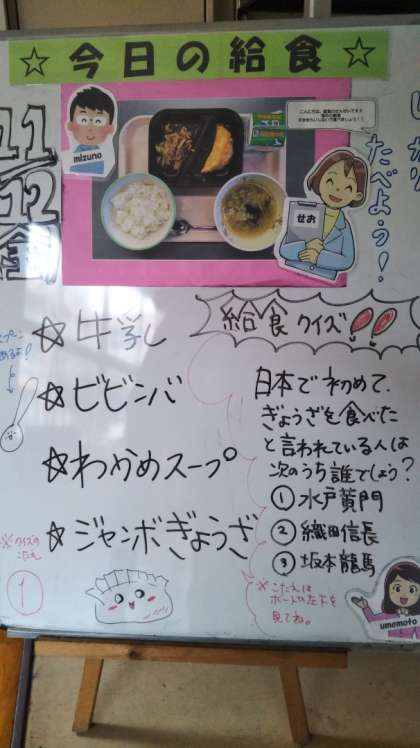 ☆ 今日の給食 ☆
11/12
mizuno
せお
たべよう!
☆牛乳
☆ビビンバ
☆わかめスープ
☆ジャンボぎょうざ
給食クイズ!!
日本で初めて、
ぎょうざを食べた
と言われている人は
次のうち誰でしょう?
①水戸黄門
②織田信長
③坂本龍馬
※こたえは
ボードの左下を
見てね。
※クイズの
こたえ
①
umemoto